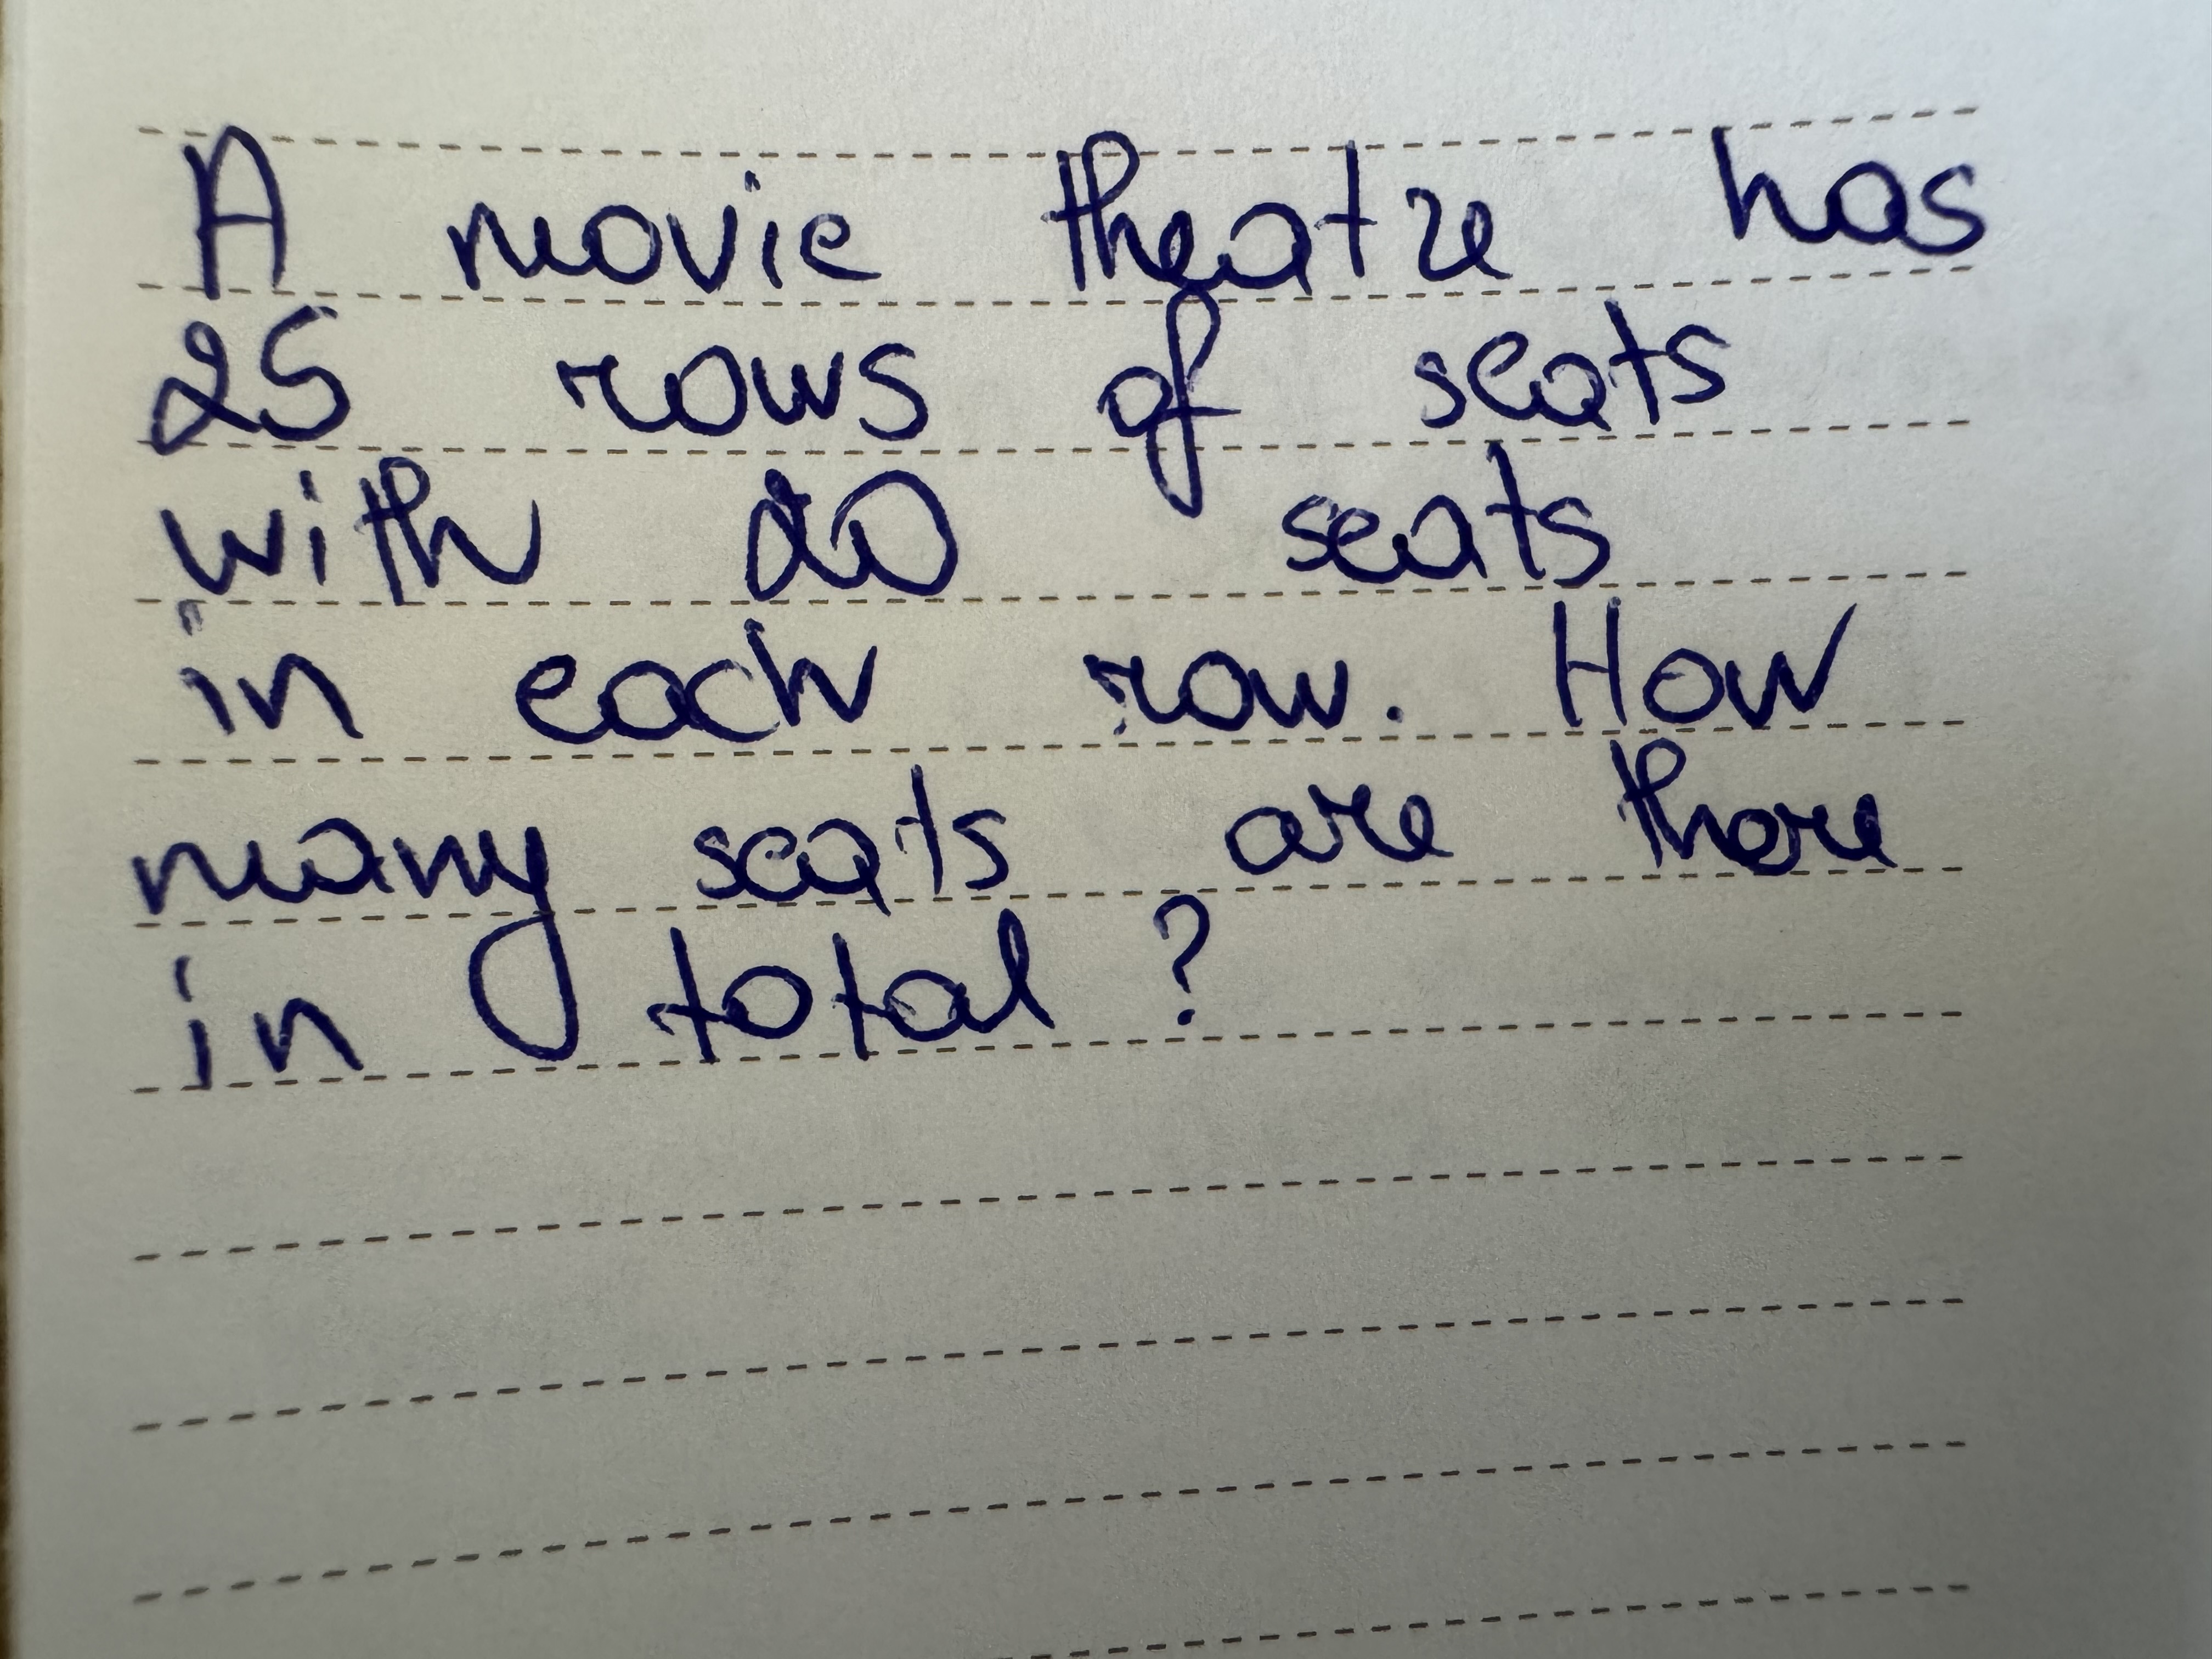 A movie theatre has
25 rows of seats
with 20 seats
in each row. How
many seats are there
in total ?